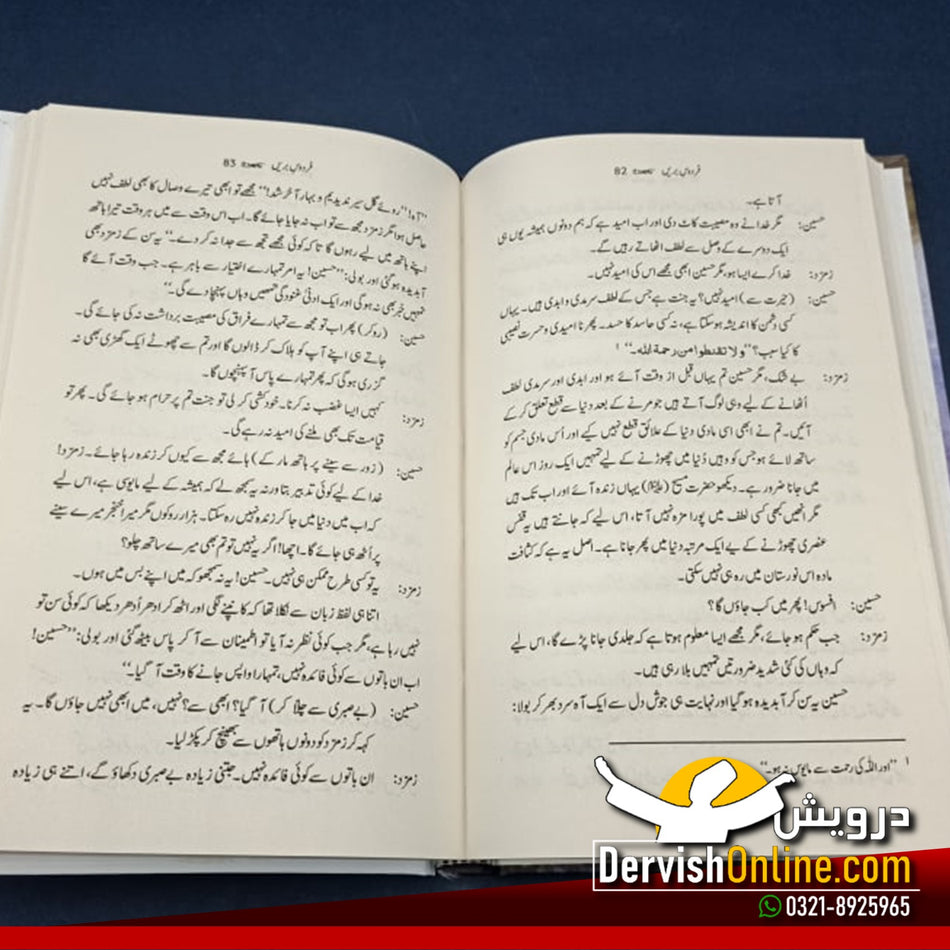 فردوسِ بریں 82
آتا ہے۔
حسین: مگر خدا نے وہ مصیبت کاٹ دی اور اب امید ہے کہ ہم دونوں ہمیشہ یوں ہی
ایک دوسرے کے وصل سے لطف اٹھاتے رہیں گے۔
زمرد: خدا کرے ایسا ہو، مگر حسین ابھی مجھے اس کی امید نہیں۔
حسین: (حیرت سے) امید نہیں؟ یہ جنت ہے جس کے لطف سرمدی و ابدی ہیں۔ یہاں
کسی دشمن کا اندیشہ ہو سکتا ہے، نہ کسی حاسد کا حسد۔ پھر نا امیدی و حسرت نصیبی
کا کیا سبب؟ ”ولا تقنطوا من رحمۃ اللہ۔“ ۱
زمرد: بے شک، مگر حسین تم یہاں قبل از وقت آئے ہو اور ابدی اور سرمدی لطف
اُٹھانے کے لیے وہی لوگ آتے ہیں جو مرنے کے بعد دنیا سے قطع تعلق کر کے
آئیں۔ تم نے ابھی اسی مادی دنیا کے علائق قطع نہیں کیے اور اُس مادی جسم کو
ساتھ لائے ہو جس کو وہیں دُنیا میں چھوڑنے کے لیے تمہیں ایک روز اس عالم
میں جانا ضرور ہے۔ دیکھو حضرت مسیح یہاں زندہ آئے اور اب تک ہیں
مگر انھیں کبھی کسی لطف میں پورا مزہ نہیں آتا، اس لیے کہ جانتے ہیں یہ قفسِ
عنصری چھوڑنے کے لیے ایک مرتبہ دنیا میں پھر جانا ہے۔ اصل یہ ہے کہ کثافت
مادہ اس نورستان میں رہ ہی نہیں سکتی۔
حسین: افسوس! پھر میں کب جاؤں گا؟
زمرد: جب حکم ہو جائے، مگر مجھے ایسا معلوم ہوتا ہے کہ جلدی جانا پڑے گا، اس لیے
کہ وہاں کی کئی شدید ضرورتیں تمہیں بلا رہی ہیں۔
حسین یہ سن کر آبدیدہ ہو گیا اور نہایت ہی جوش دل سے ایک آہ سرد بھر کر بولا:
۱ ”اور اللہ کی رحمت سے مایوس نہ ہو۔“
فردوسِ بریں 83
”آہ! ”روئے گل سیر ندیدیم و بہار آخر شد!“ مجھے تو ابھی تیرے وصال کا بھی لطف نہیں
حاصل ہوا مگر زمرد مجھ سے تو اب نہ جایا جائے گا۔ اب اس وقت سے میں ہر وقت تیرا ہاتھ
اپنے ہاتھ میں لیے رہوں گا تا کہ کوئی مجھے تجھ سے جدا نہ کر دے۔“ یہ سن کے زمرد بھی
آبدیدہ ہو گئی اور بولی: ”حسین! یہ امر تمہارے اختیار سے باہر ہے۔ جب وقت آئے گا
تمہیں خبر بھی نہ ہو گی اور ایک ادنیٰ غنودگی تمھیں وہاں پہنچا دے گی۔“
حسین: (رو کر) پھر اب تو مجھ سے تمہارے فراق کی مصیبت برداشت نہ کی جائے گی۔
جاتے ہی اپنے آپ کو ہلاک کر ڈالوں گا اور تم سے چھوٹے ایک گھڑی بھی نہ
گزری ہو گی کہ پھر تمہارے پاس آ پہنچوں گا۔
زمرد: کہیں ایسا غضب نہ کرنا۔ خودکشی کر لی تو جنت تم پر حرام ہو جائے گی۔ پھر تو
قیامت تک بھی ملنے کی امید نہ رہے گی۔
حسین: (زور سے سینے پر ہاتھ مار کے) ہائے مجھ سے کیوں کر زندہ رہا جائے۔ زمرد!
خدا کے لیے کوئی تدبیر بتا ورنہ یہ سمجھ لے کہ ہمیشہ کے لیے مایوسی ہے، اس لیے
کہ اب میں دنیا میں جا کر زندہ نہیں رہ سکتا۔ ہزار روکوں مگر میرا خنجر میرے سینے
پر اُٹھ ہی جائے گا۔ اچھا! اگر یہ نہیں تو تم بھی میرے ساتھ چلو؟
زمرد: یہ تو کسی طرح ممکن ہی نہیں۔ حسین! یہ نہ سمجھو کہ میں اپنے بس میں ہوں۔
اتنا ہی لفظ زبان سے نکلا تھا کہ کانپنے لگی اور اٹھ کر ادھر اُدھر دیکھا کہ کوئی سن تو
نہیں رہا ہے، مگر جب کوئی نظر نہ آیا تو اطمینان سے آ کر پاس بیٹھ گئی اور بولی: ”حسین!
اب ان باتوں سے کوئی فائدہ نہیں، تمہارا واپس جانے کا وقت آ گیا۔“
حسین: (بے صبری سے چلّا کر) آ گیا؟ ابھی سے؟ نہیں، میں ابھی نہیں جاؤں گا۔ یہ
کہہ کر زمرد کو دونوں ہاتھوں سے بھینچ کر پکڑ لیا۔
زمرد: ان باتوں سے کوئی فائدہ نہیں۔ جتنی زیادہ بے صبری دکھاؤ گے، اتنے ہی زیادہ
درویش
DervishOnline.com
0321-8925965